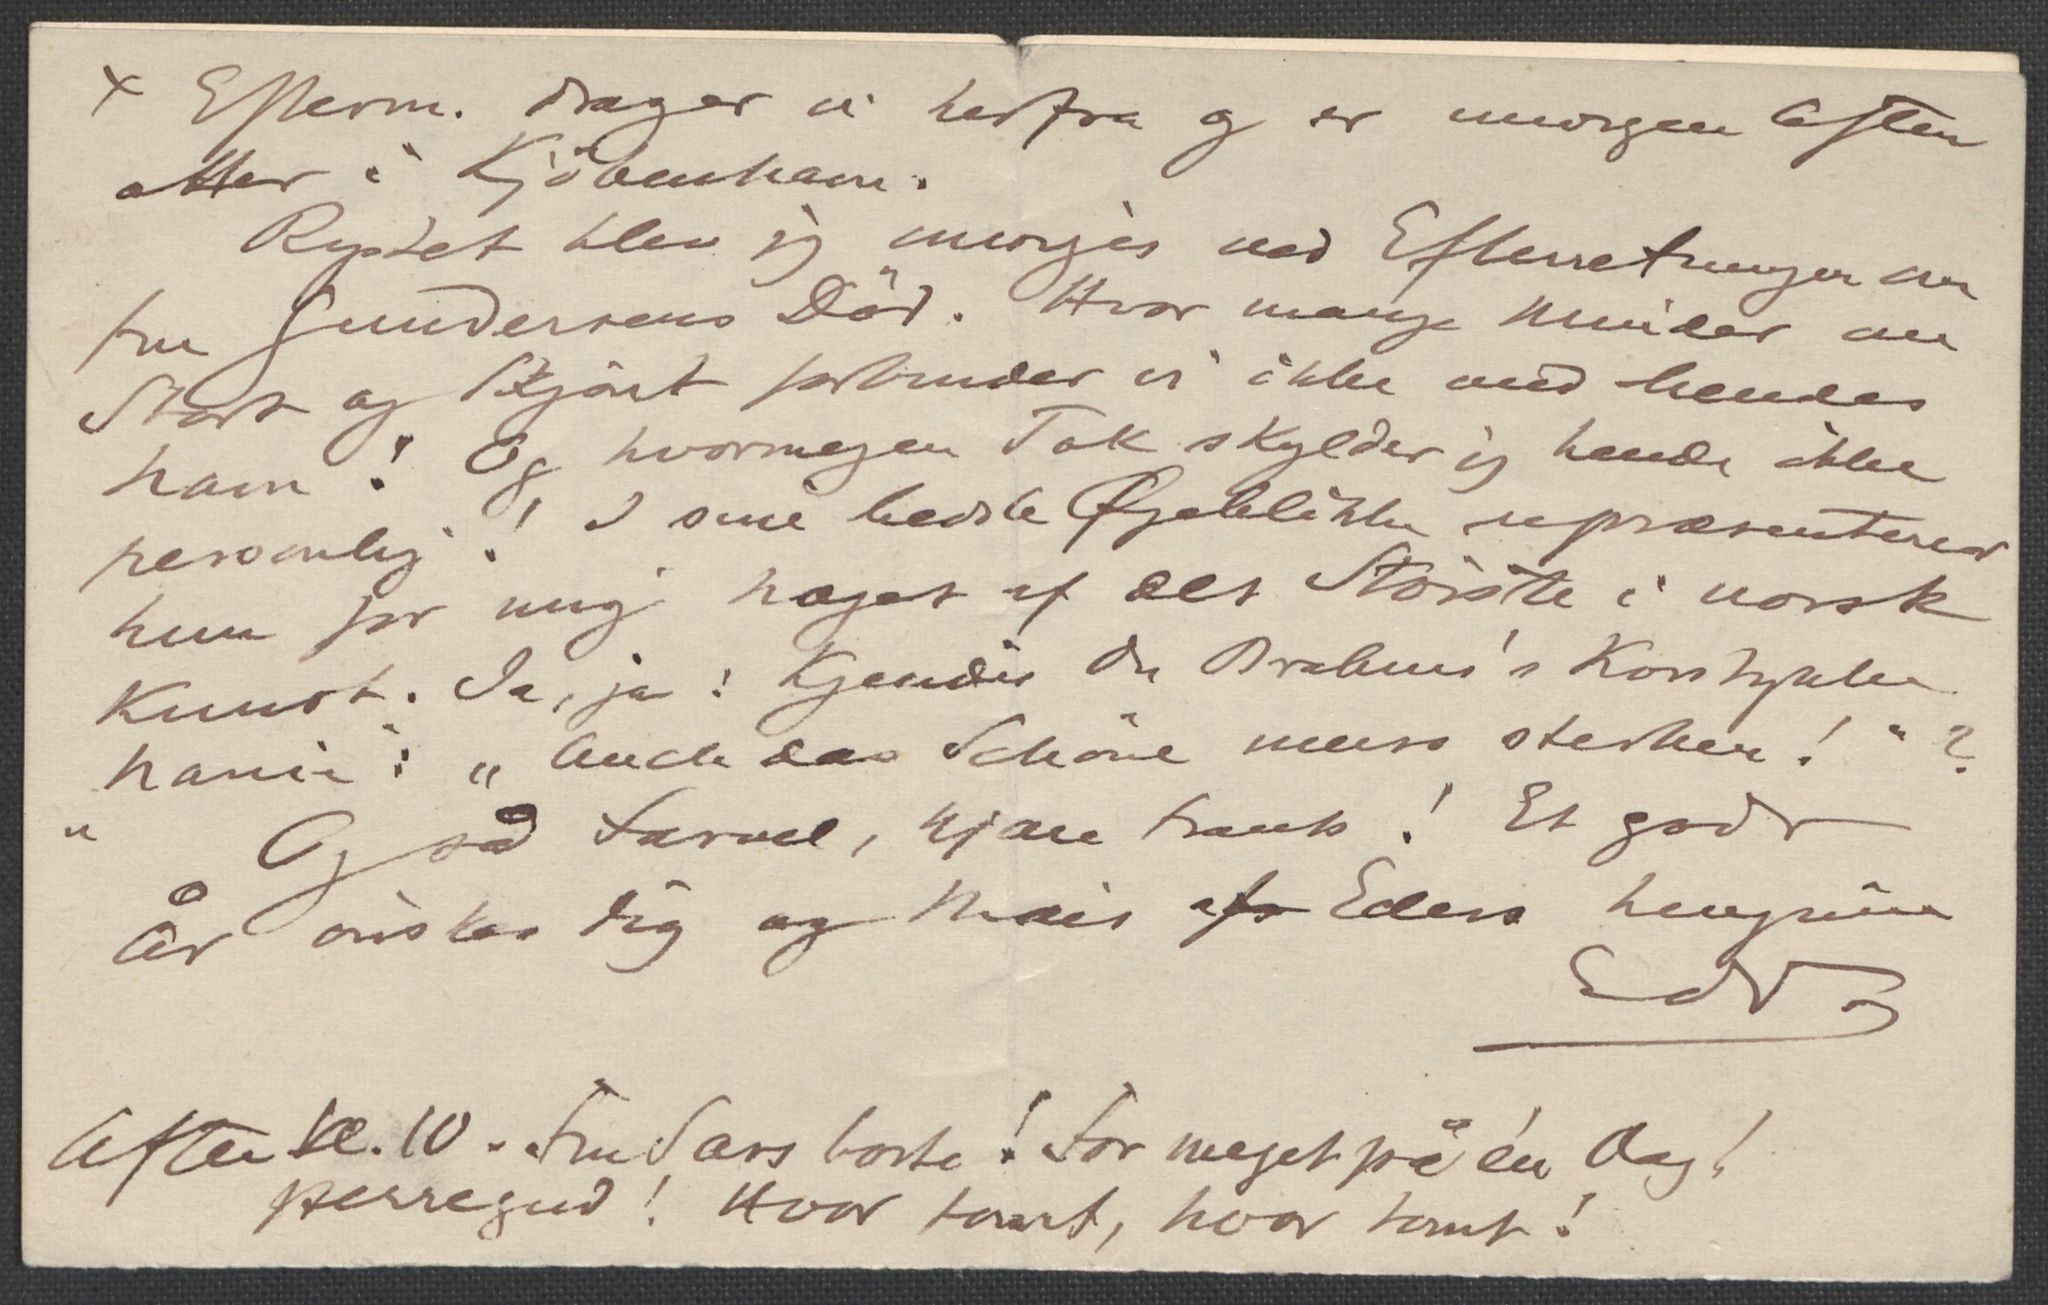 x Efterm. drager vi herfra og er morgen Aften
atter i Kjöbenhavn.
Rystet blev jeg morges ved Efterretningen om
Fru Gundersens Död. Hvor mange Minder om
Stort og Skjönt forbinder vi ikke med hendes
Navn! Og hvormegen Tak skylder jeg hende ikke
personlig! I sine bedste Øjeblikke repræsenterer
hun for mig noget af det Störste i norsk
Kunst. Ja, ja! Kjender du Brahms's Korstykke
"Nänie": „Auch das Schöne muss sterben!“?
Og så Farvel, kjære Frants! Et godt
År önskes dig og Nais af Eders hengivne
Edv
Aften Kl. 10. Fru Sars borte! For meget på én Dag!
Herregud! Hvor tomt, hvor tomt!